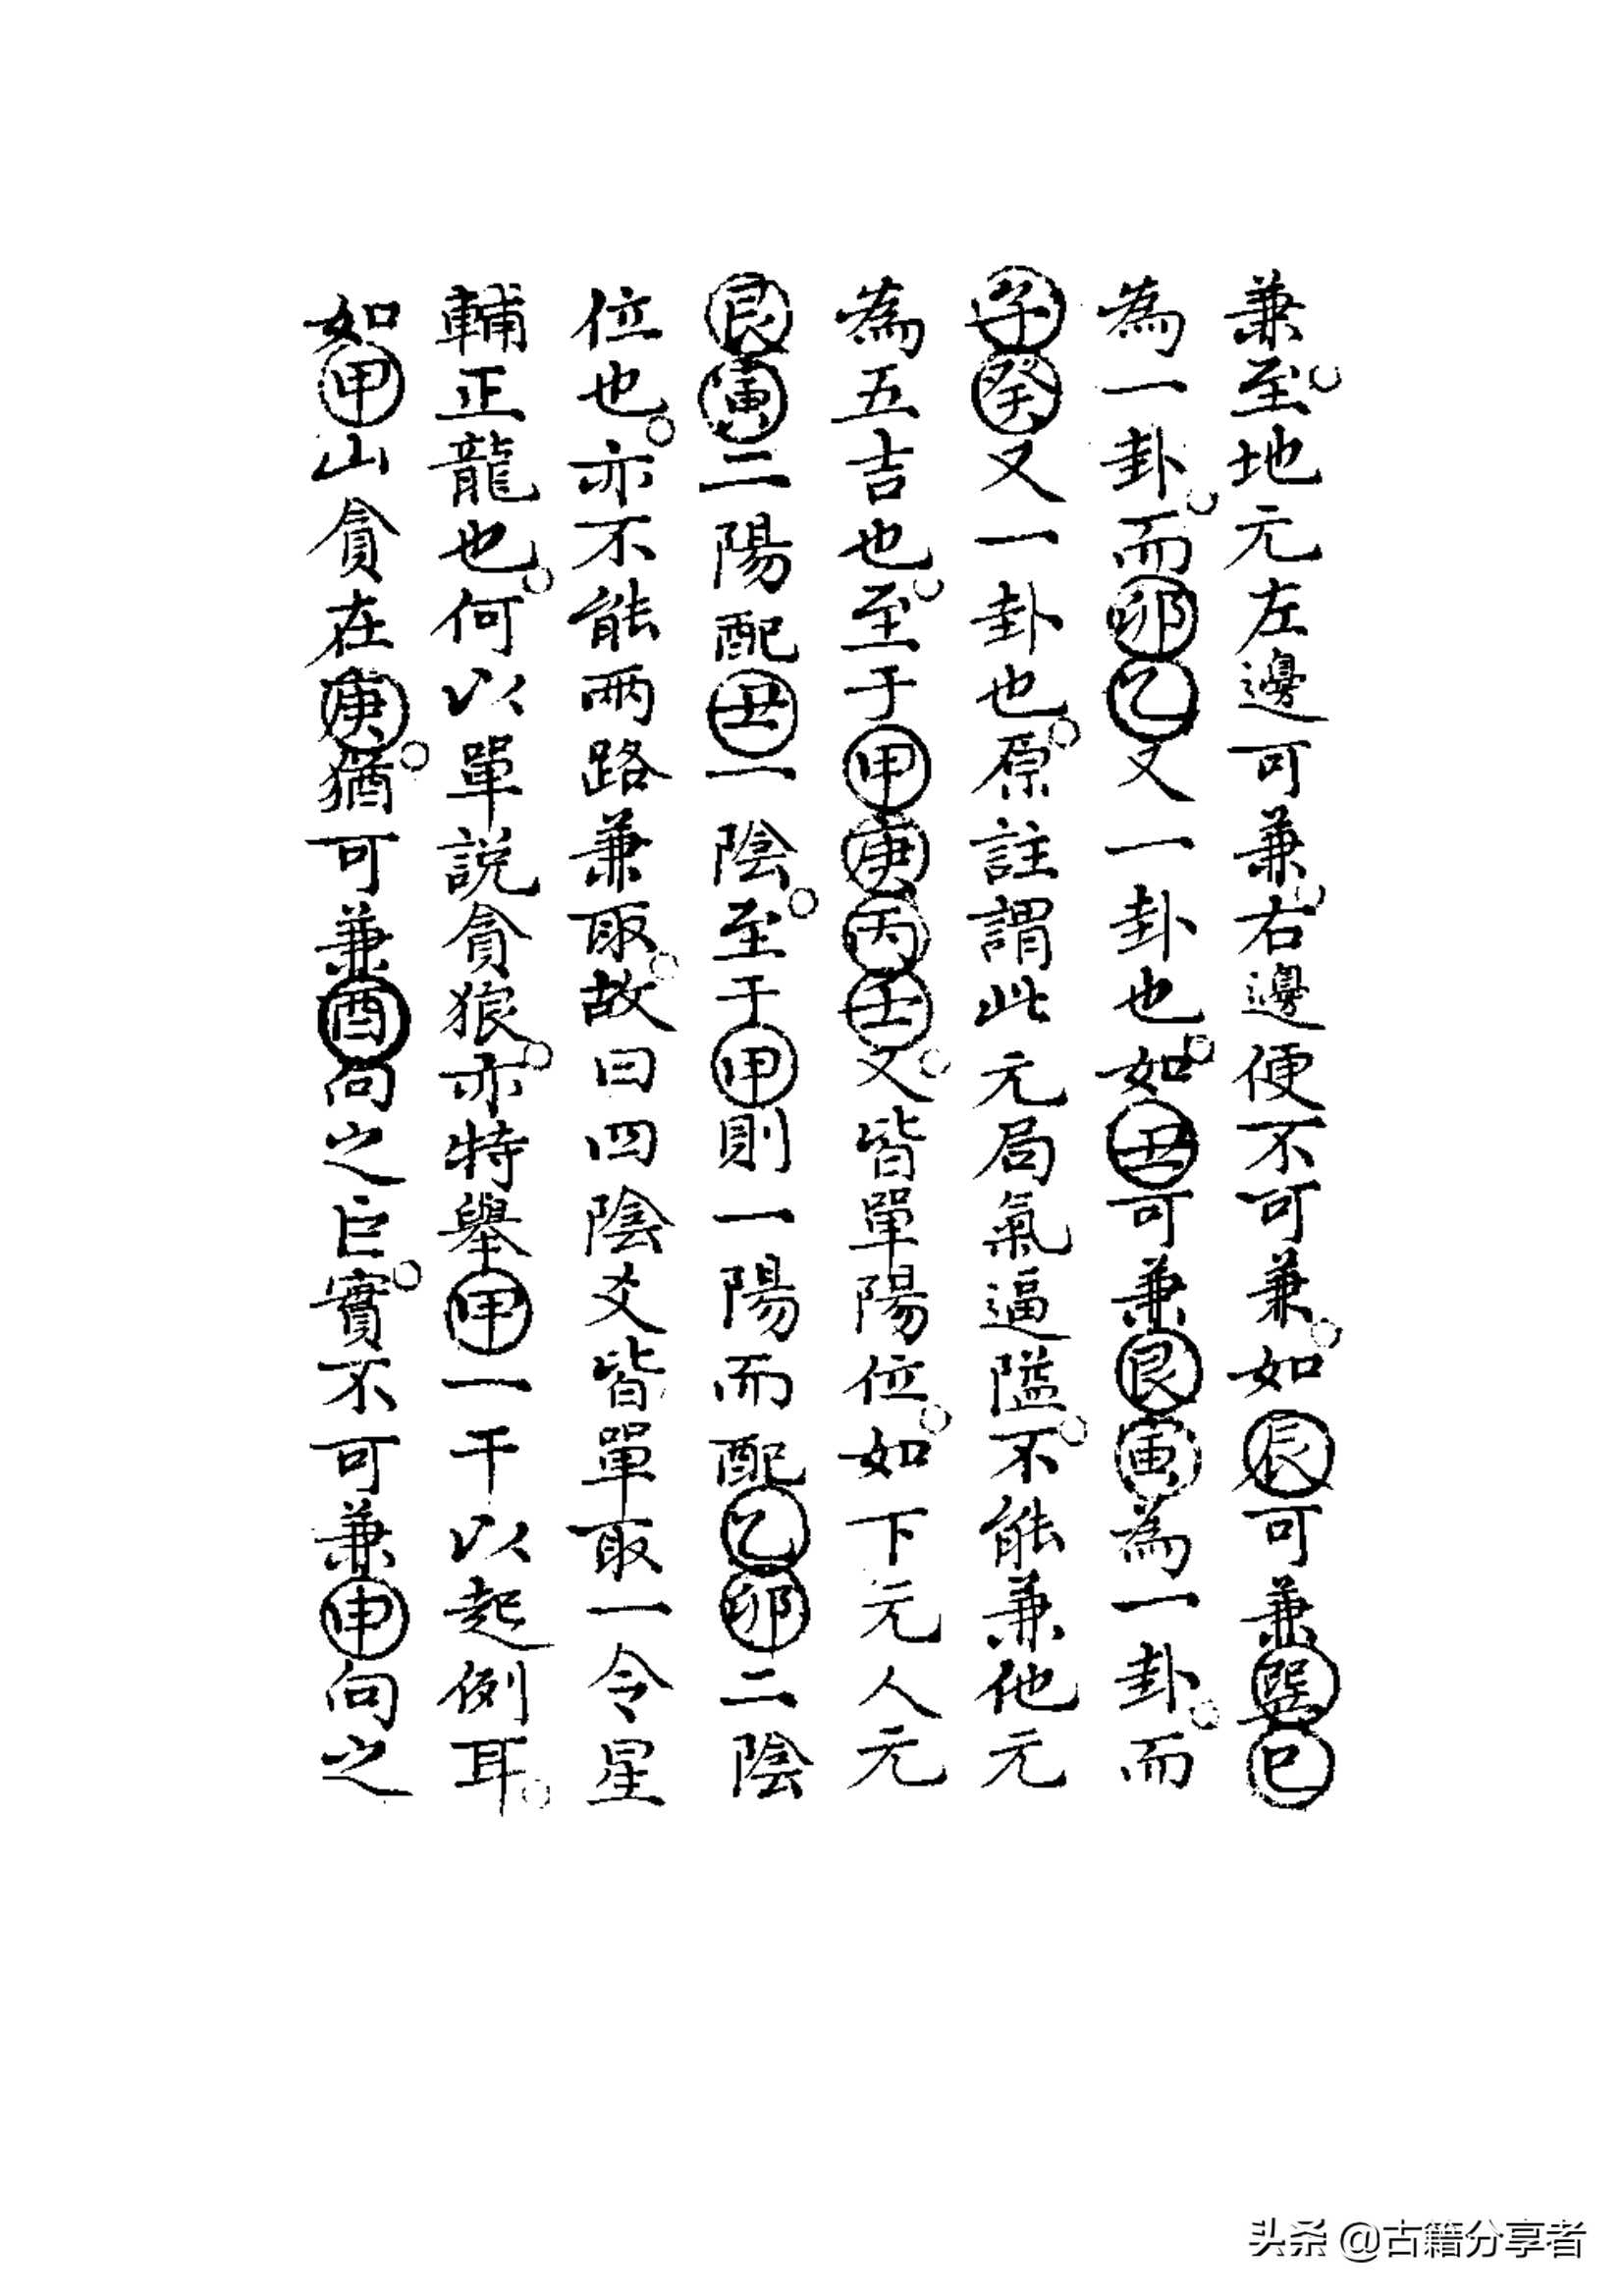 兼至地元左邊可兼右邊便不可兼如辰可兼巽巳
為一卦而卯乙又一卦也如丑可兼艮寅為一卦而
子癸又一卦也原註謂此元局氣逼隘不能兼他元
為五吉也至于甲庚丙壬又皆單陽位如下元人元
艮寅二陽配丑一陰至于甲則一陽而配乙卯二陰
位也亦不能兩路兼取故曰四陰爻皆單取一令星
輔正龍也何以單説貪狼亦特舉甲一干以起例耳
如甲山貪在庚猶可兼酉向之巨實不可兼申向之
头条 @古籍分享者